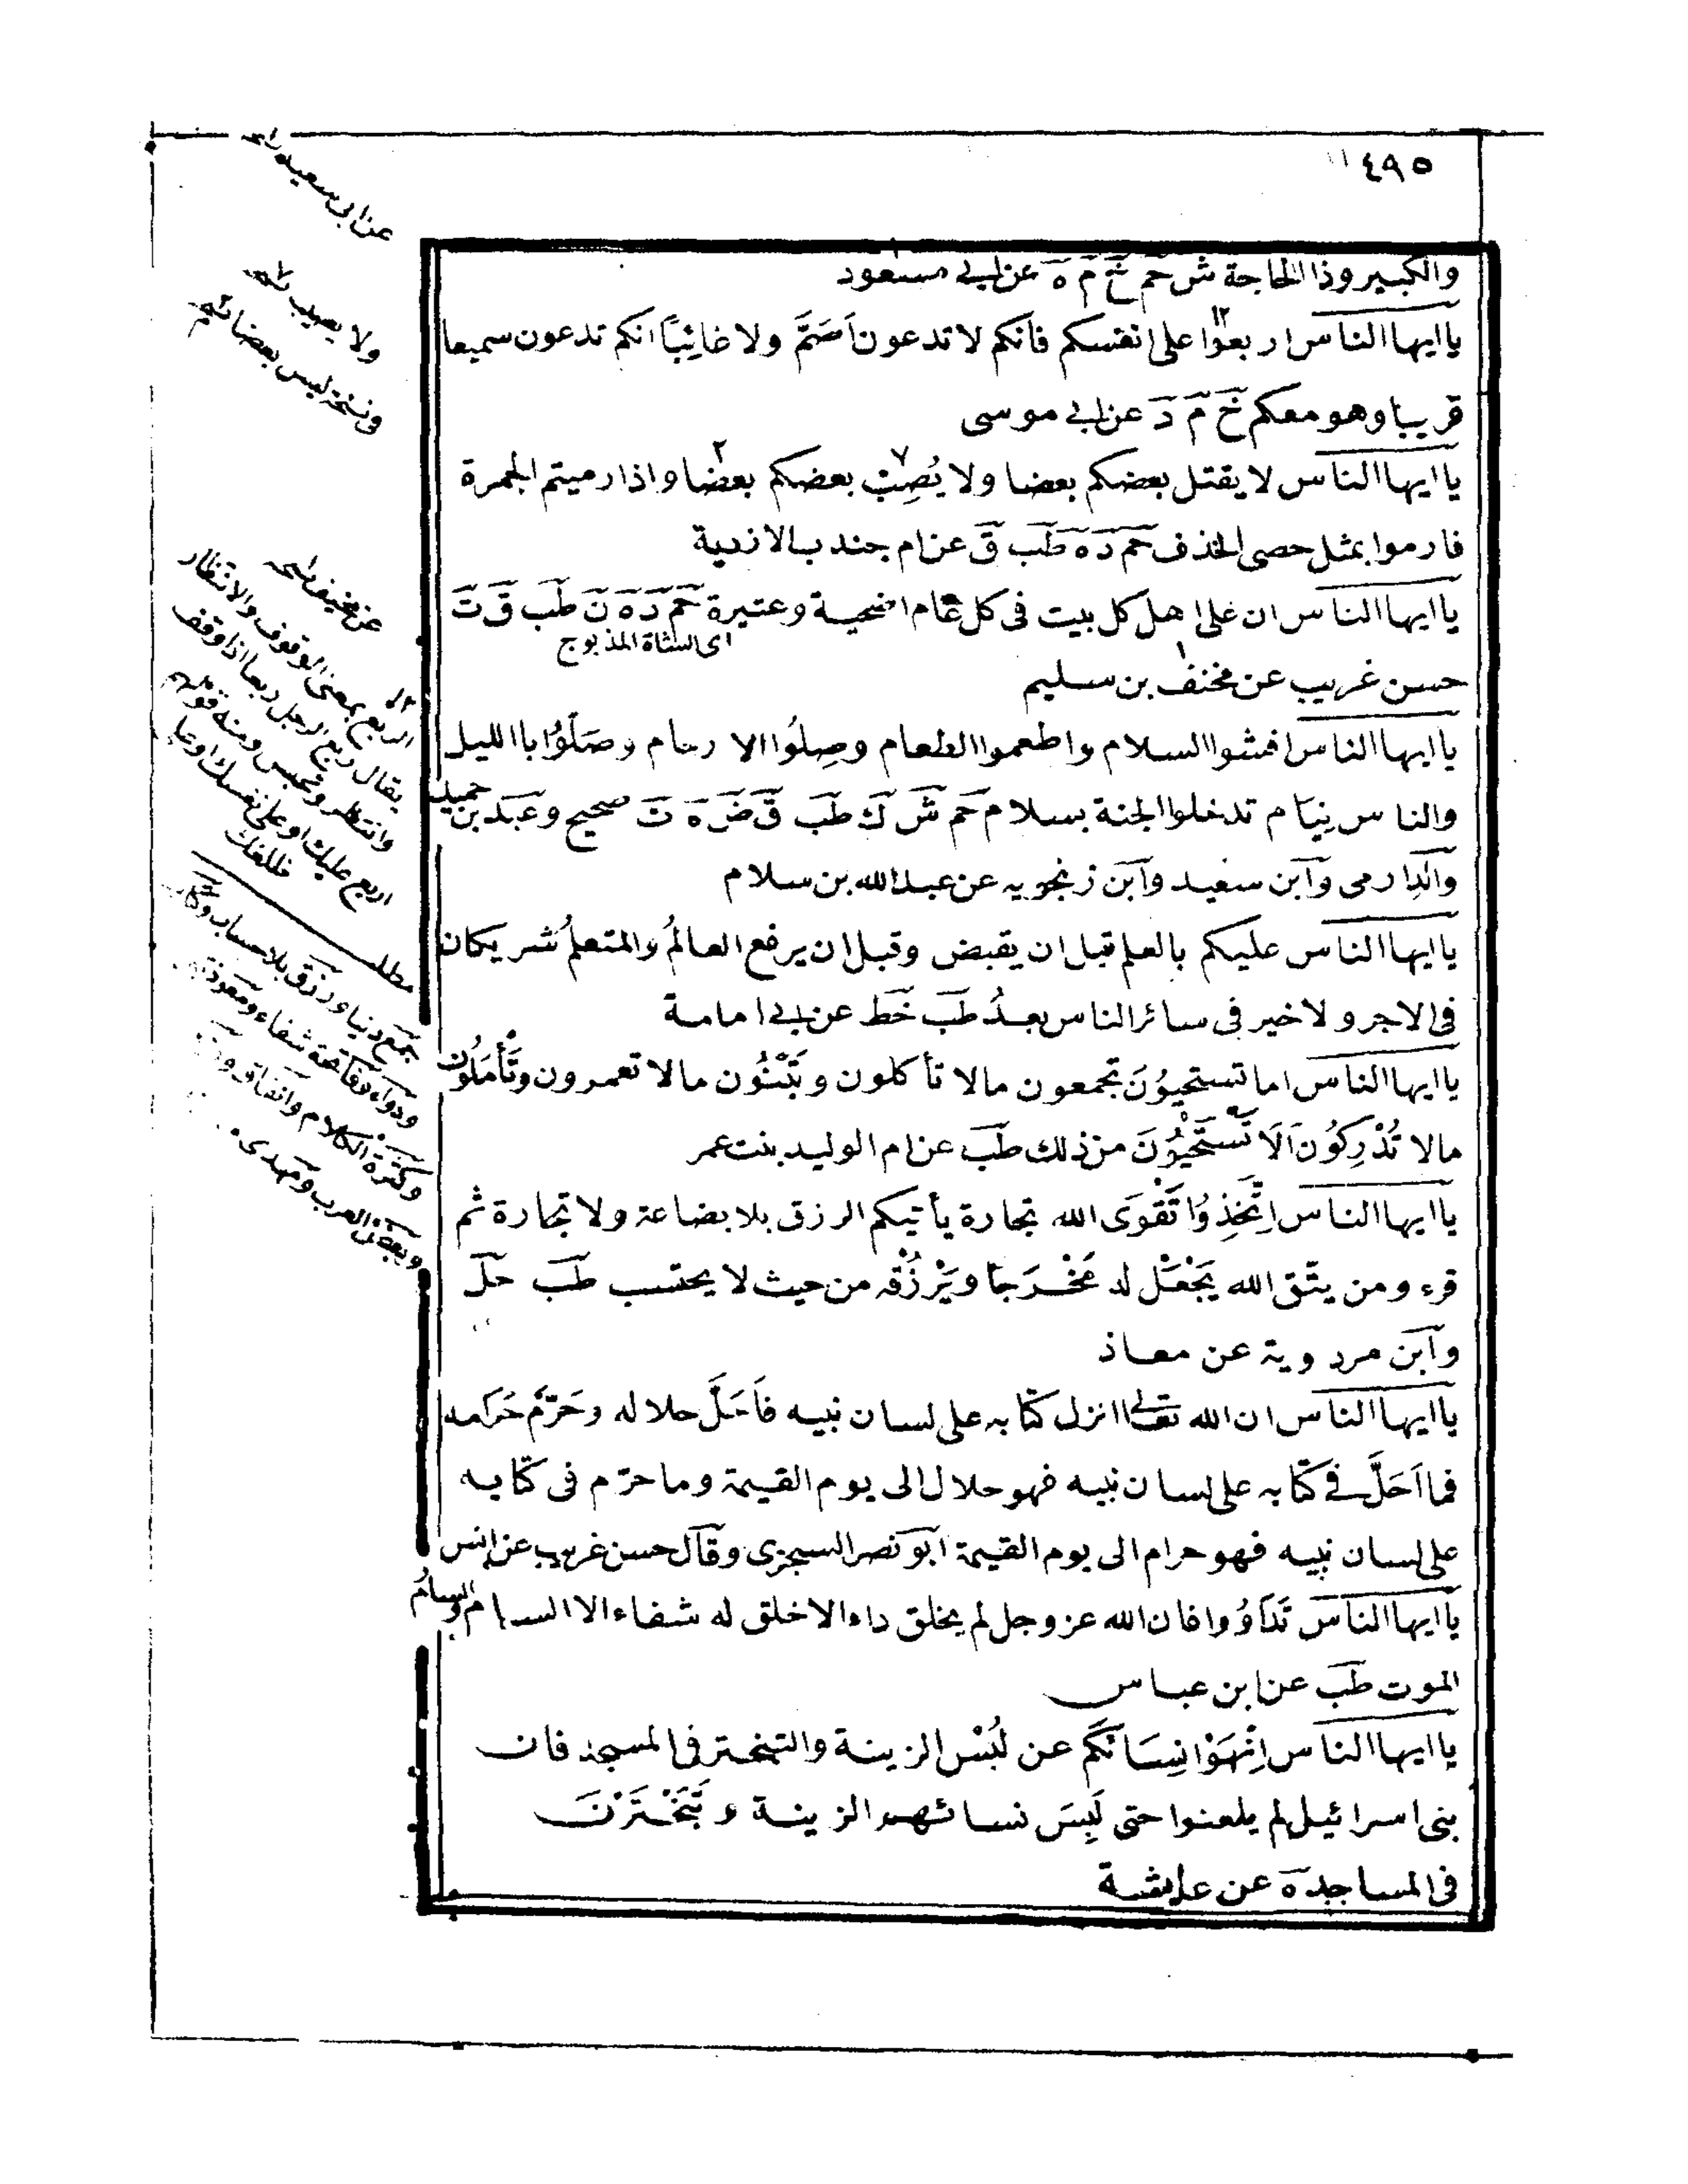 ٤٩٥
والكبير وذا الحاجة ش حم خ م ه عن ابى مسعود
يا ايها الناس اربعوا على انفسكم فانكم لا تدعون اَصَمَّ ولا غائِبًا انكم تدعون سميعا
قريبا وهو معكم خ م د عن ابى موسى
يا ايها الناس لا يقتل بعضكم بعضا ولا يُصِبْ بعضكم بعضا واذا رميتم الجمرة
فارموا بمثل حصى الخذف حم د ه طب ق عن ام جندب الازدية
يا ايها الناس ان على اهل كل بيت فى كل عام اضحية وعتيرة حم د ه ن طب ق ت
اى الشاة المذبوح
حسن غريب عن مخنف بن سليم
يا ايها الناس افشوا السلام واطعموا الطعام وصِلُوا الارحام وصَلُّوا باالليل
والناس نِيَام تدخلوا الجنة بسلام حم ش ك طب ق ض ه ت صحيح وعبد بن حميد
والدارمى وابن سعيد وابن زنجويه عن عبد الله بن سلام
يا ايها الناس عليكم بالعلم قبل ان يقبض وقبل ان يرفع العالمُ والمتعلمُ شريكان
فى الاجر ولا خير فى سائر الناس بعدُ طب خط عن ابى امامة
يا ايها الناس اما تستحيوُنَ تجمعون مالا تأكلون وتَبْنُون مالا تعمرون وتَأْمَلُون
مالا تُدْرِكُونَ اَلَا تَسْتَحْيُوْنَ من ذلك طب عن ام الوليد بنت عمر
يا ايها الناس اِتَّخِذِوُا تَقْوَى الله تجارة يأتيكم الرزق بلا بضاعة ولا تجارة ثم
قرء ومن يتّق الله يَجْعَلْ له مَخْرَجًا ويَرْزُقْه من حيث لا يحتسب طب حل
وابن مردوية عن معاذ
يا ايها الناس ان الله تعالى انزل كتابه على لسان نبيه فاَحَلَّ حلاله وحَرَّم حَرَامه
فما اَحَلَّ فى كتابه على لسان نبيه فهو حلال الى يوم القيمة وما حرّم فى كتابه
على لسان نبيه فهو حرام الى يوم القيمة ابو نصر السجزى وقال حسن غريب عن انس
يا ايها الناس تَدَاوُوا فان الله عز وجل لم يخلق داء الا خلق له شفاء الا السام والسامُ
الموت طب عن ابن عباس
يا ايها الناس اِنْهَوْا نِسَائَكُم عن لُبْسِ الزينة والتبختر فى المسجد فان
بنى اسرائيل لم يلعنوا حتى لَبِسَ نسائهم الزينة وتَبَخْتَرْنَ
فى المساجد ه عن عايشة
عن ابى سعيد
ولا يصيب
ونسخة ليس بعضا
عن مخنف نسخه
الربع بمعنى الوقوف والانتظار
يقال ربع الرجل ربعا اذا وقف
وانتظر وتحبس ومنه قولهم
اربع عليك او على نفسك او على
ظلعك
مطلب
جمع دنيا ورزق بلا حساب
ودواء وفاتحة شفاء ومعوذ
وكثرة الكلام وانفاق
وبغض العرب ومهدى